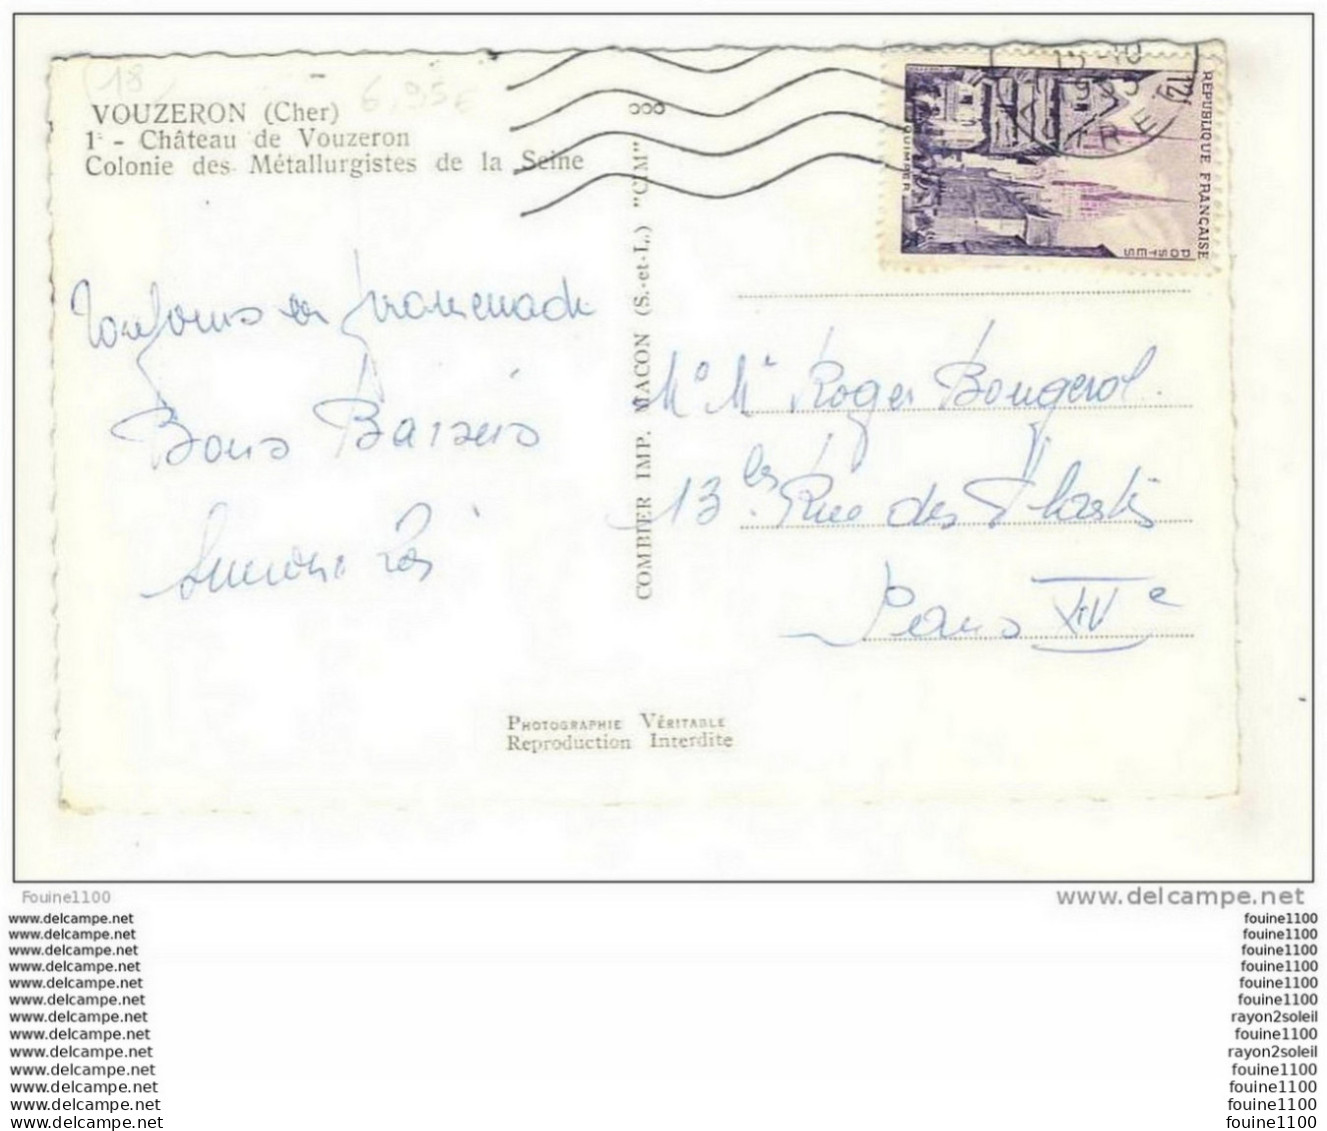 (18)
6,95€
VOUZERON (Cher)
1 - Château de Vouzeron
Colonie des Métallurgistes de la Seine
Toujours en promenade
Bons Baisers
COMBIER IMP. MACON (S.-et-L.) "CIM"
REPUBLIQUE FRANÇAISE
POSTES
12f
QUIMPER
Roger Bougerol
13 bis Rue des Plantes
Paris XIVe
PHOTOGRAPHIE VÉRITABLE
Reproduction Interdite
Fouine1100
www.delcampe.net
www.delcampe.net
www.delcampe.net
www.delcampe.net
www.delcampe.net
www.delcampe.net
www.delcampe.net
www.delcampe.net
www.delcampe.net
www.delcampe.net
www.delcampe.net
www.delcampe.net
www.delcampe.net
www.delcampe.net
fouine1100
fouine1100
fouine1100
fouine1100
fouine1100
fouine1100
rayon2soleil
fouine1100
rayon2soleil
fouine1100
fouine1100
fouine1100
fouine1100